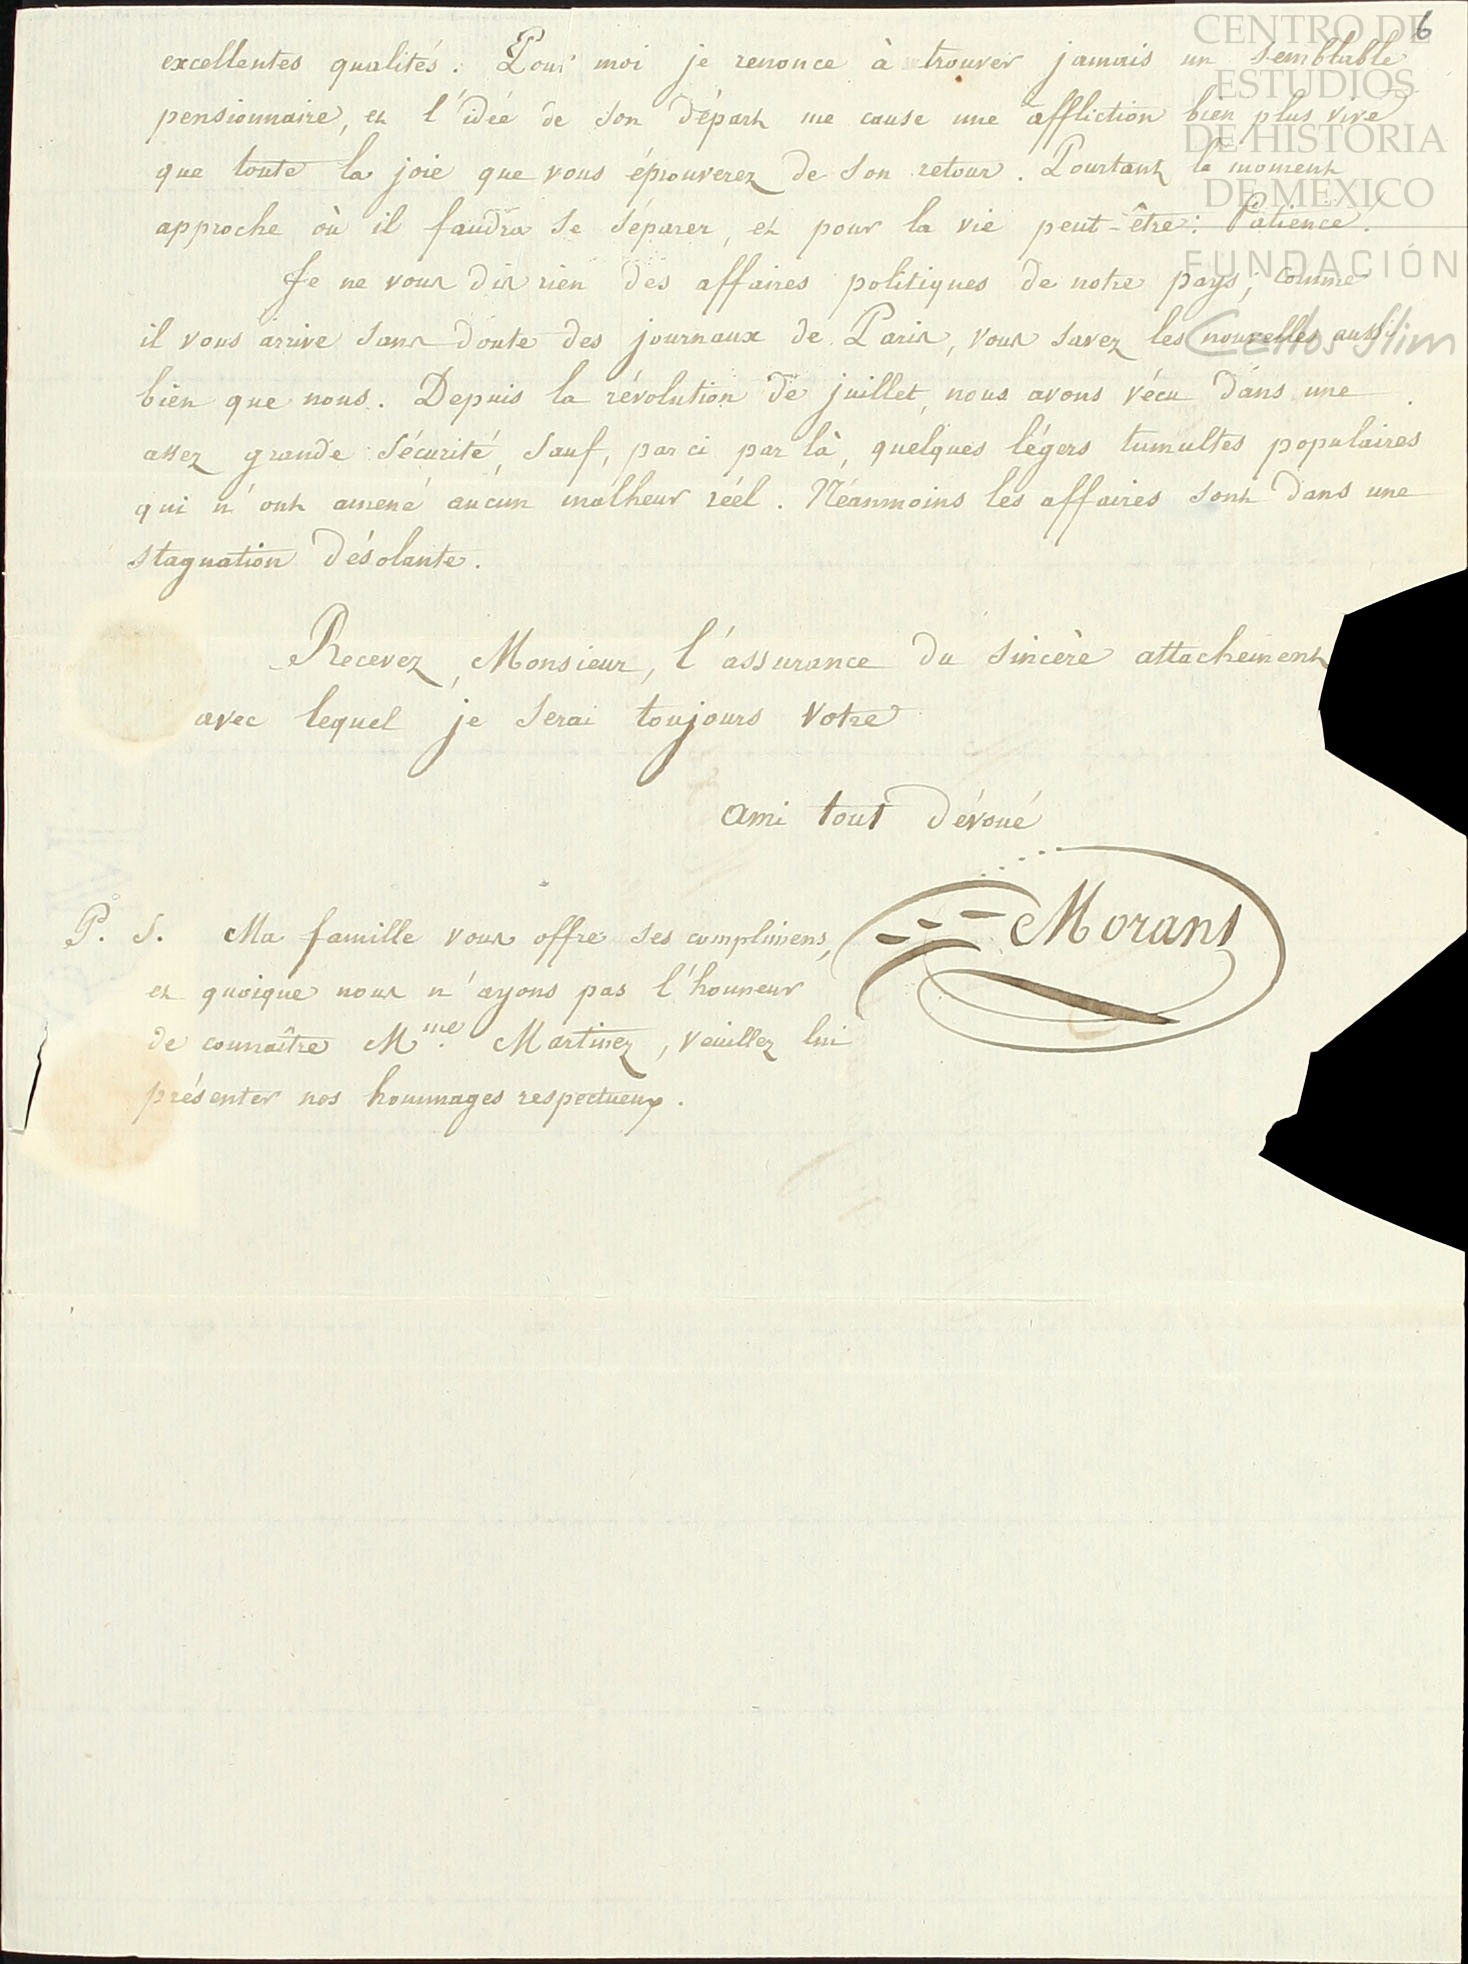 6
CENTRO DE
ESTUDIOS
DE HISTORIA
DE MÉXICO
FUNDACIÓN
Carlos Slim
excellentes qualités. Pour moi je renonce à trouver jamais un semblable
pensionnaire, et l'idée de son départ me cause une affliction bien plus vive
que toute la joie que vous éprouverez de son retour. Pourtant le moment
approche où il faudra se séparer, et pour la vie peut-être: Patience!
Je ne vous dis rien des affaires politiques de notre pays; comme
il vous arrive sans doute des journaux de Paris, vous savez les nouvelles aussi
bien que nous. Depuis la révolution de juillet, nous avons vécu dans une
assez grande sécurité, sauf, par ci par là, quelques légers tumultes populaires
qui n'ont amené aucun malheur réel. Néanmoins les affaires sont dans une
stagnation désolante.
Recevez, Monsieur, l'assurance du sincère attachement
avec lequel je serai toujours votre
ami tout dévoué
Morant
P. S. Ma famille vous offre ses complimens,
et quoique nous n'ayons pas l'honneur
de connaître Mme. Martinez, veuillez lui
présenter nos hommages respectueux.